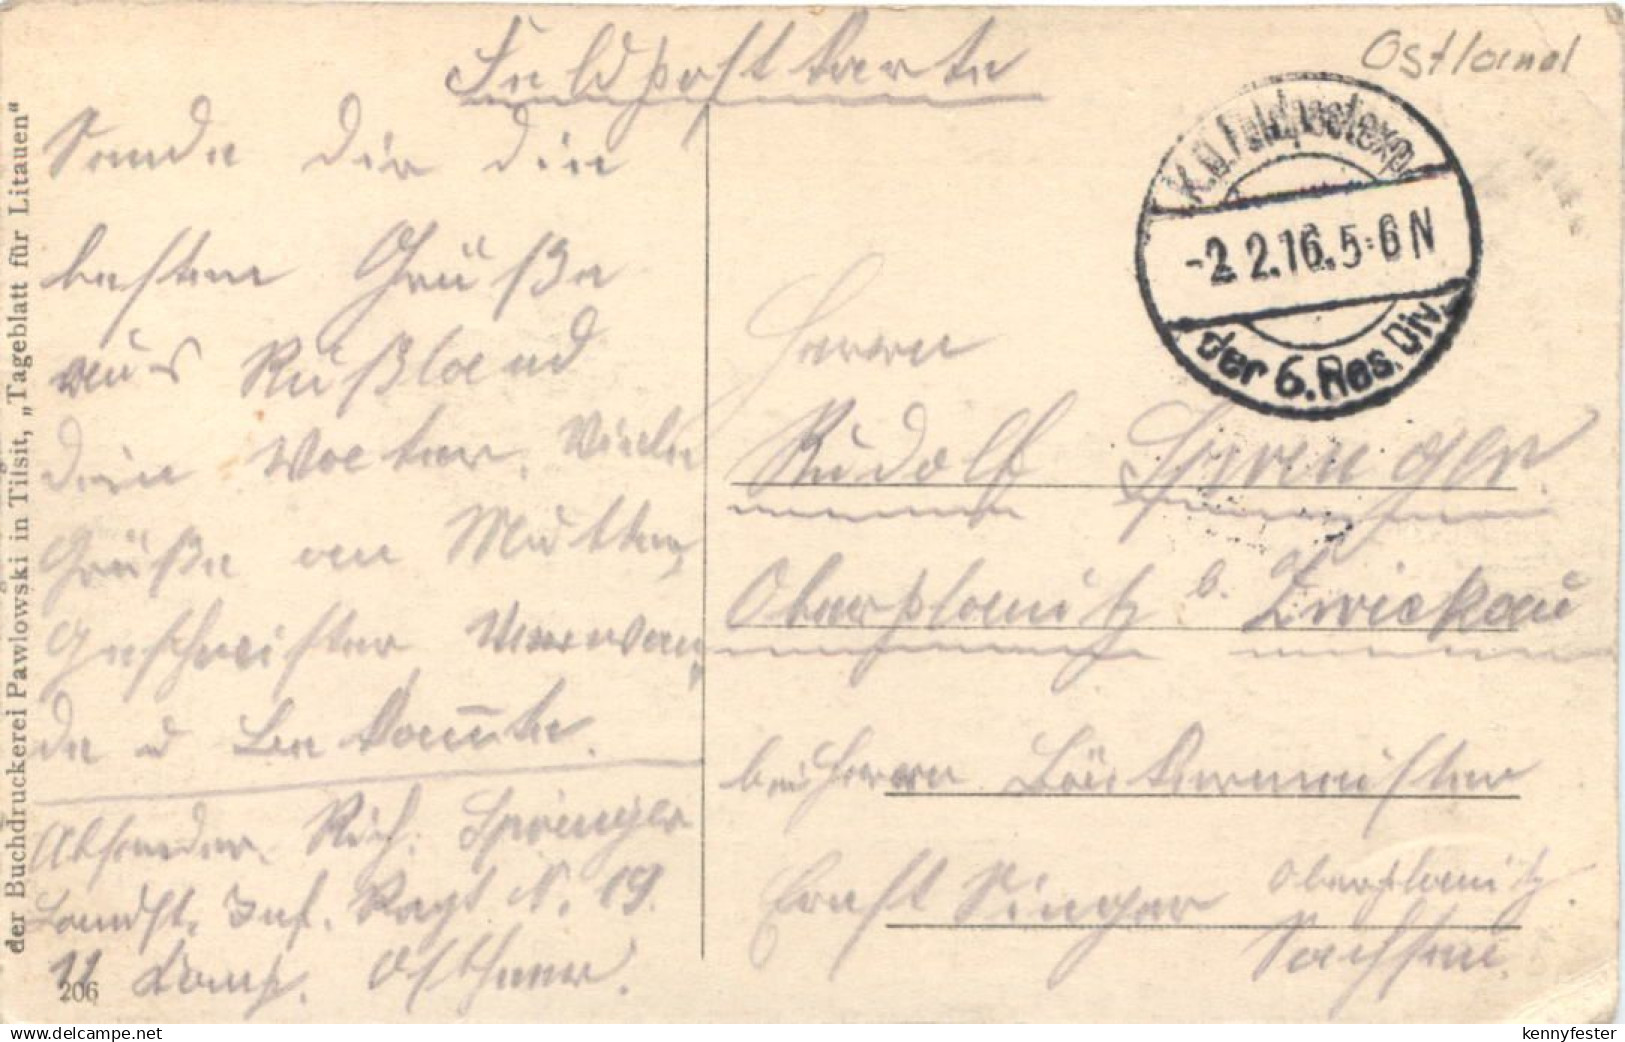 Feldpostkarte
Ostland
K.D. Feldpostexp.
-2.2.16.5-6N
der 6. Res. Div.
Sende dir die
besten Grüße
aus Rußland
dein Vater. Viele
Grüße an Mutter,
Geschwister Verwan
de u Bekannte.
Absender. Rich. Sprenger
Landst. Inf. Regt N. 19.
11 Komp. Ostheer.
Herrn
Rudolf Sprenger.
Oberplanitz b. Zwickau
bei Herrn Bäckermeister
Ernst Singer Oberplanitz.
Sachsen.
der Buchdruckerei Pawlowski in Tilsit, „Tageblatt für Litauen"
206
www.delcampe.net
kennyfester